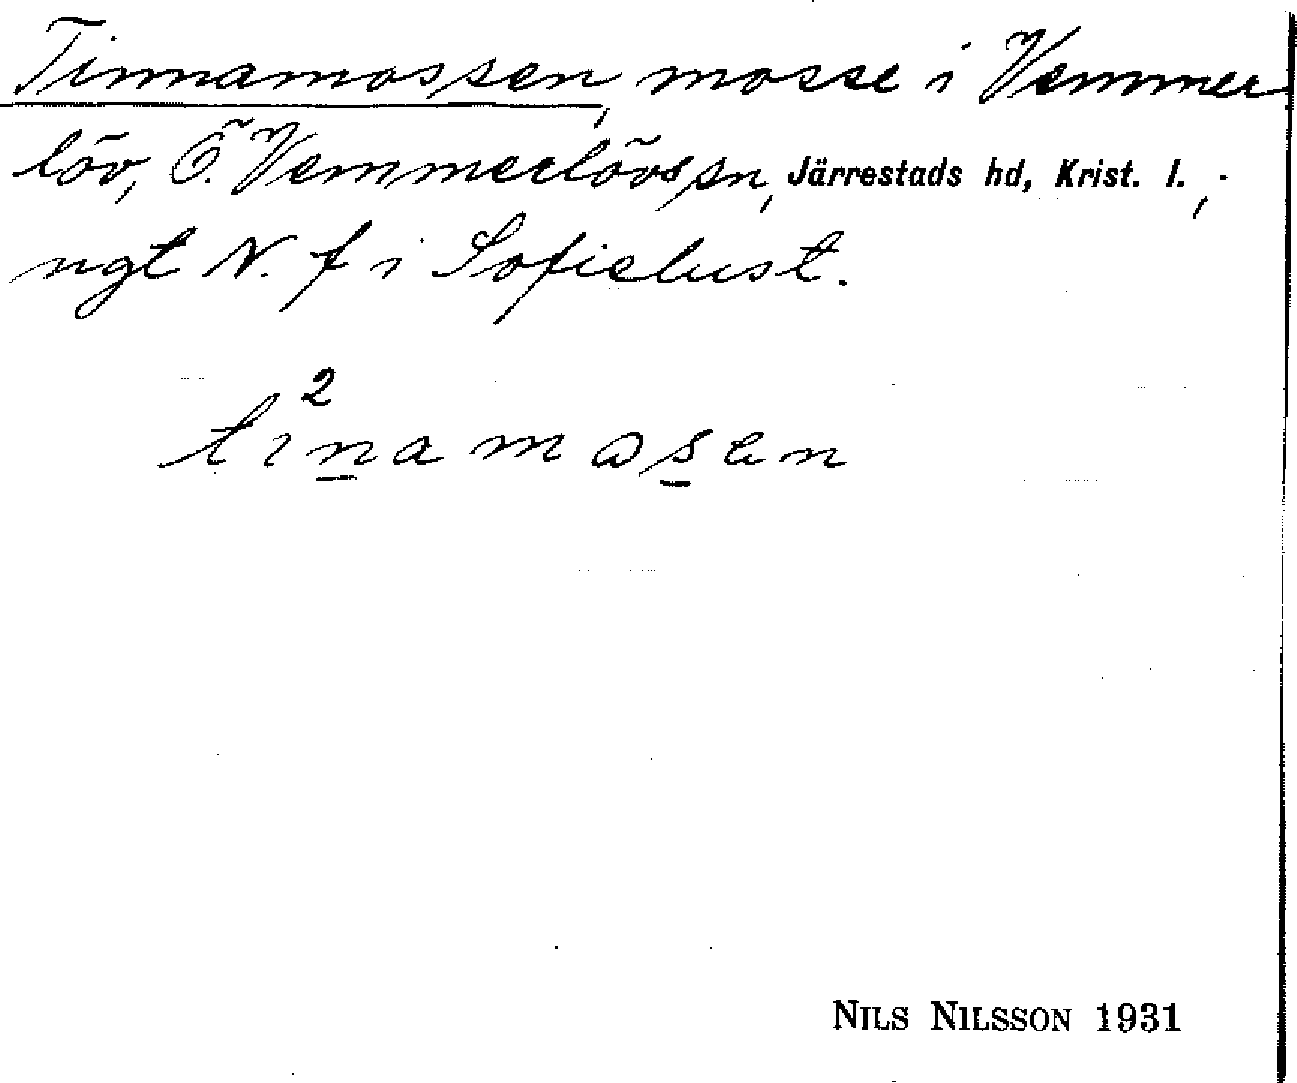 Tinnamossen, mosse i Vemmer
löv, Ö. Vemmerlövs sn, Järrestads hd, Krist. l.,
ngt N. f i Sofielust.
2
tinamosen
NILS NILSSON 1931